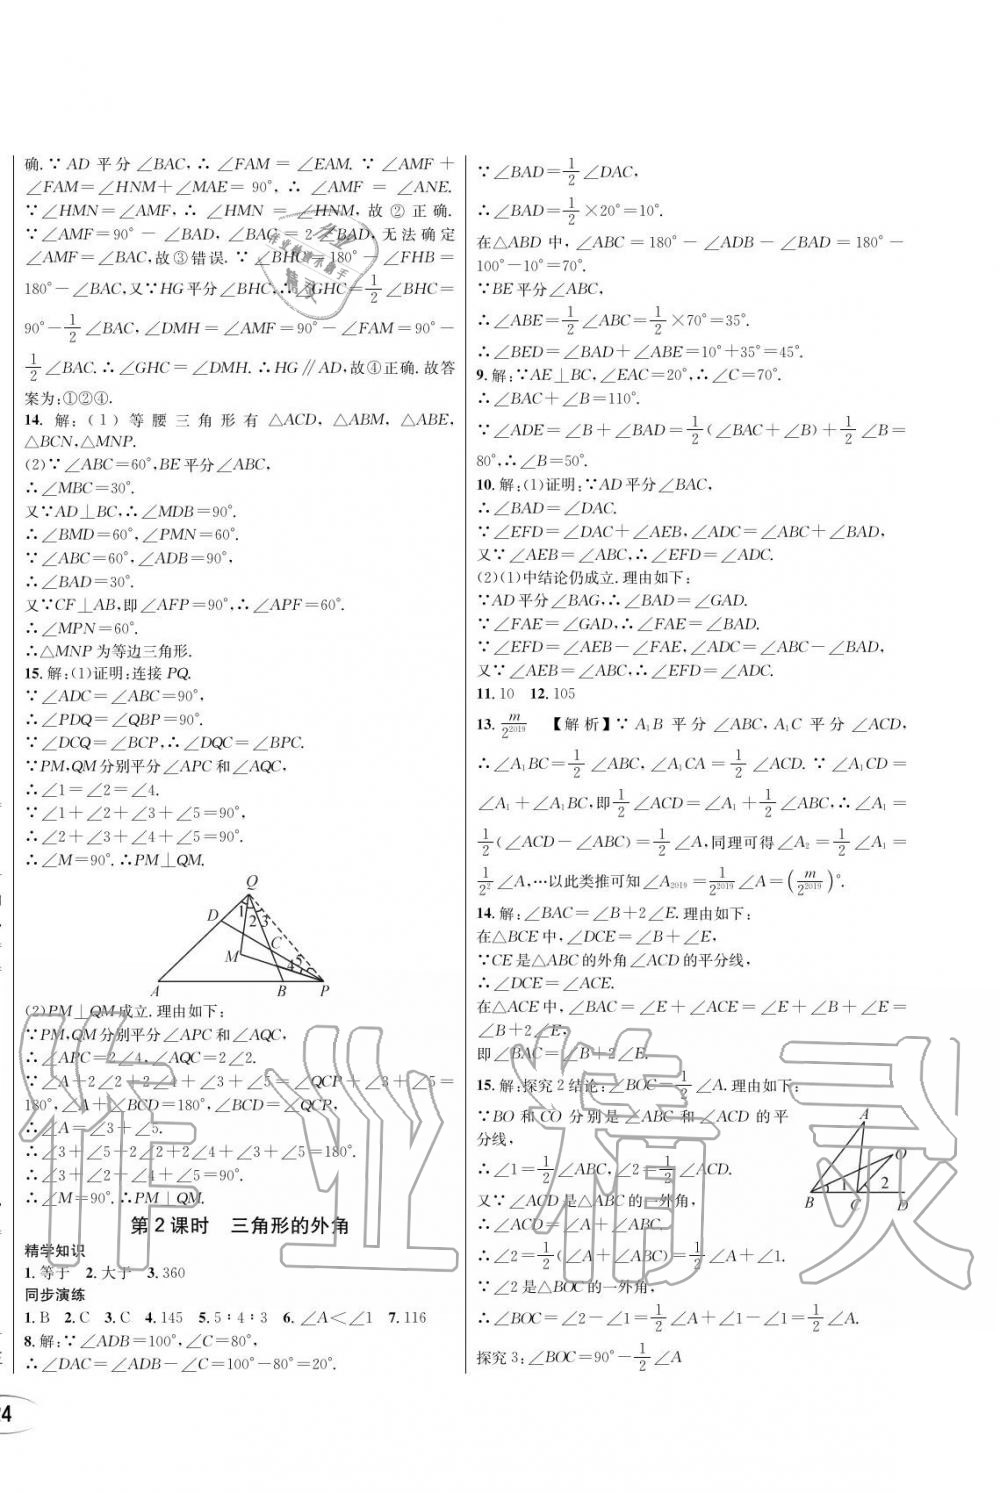 确.∵AD平分∠BAC,∴∠FAM=∠EAM.∵∠AMF+
∠FAM=∠HNM+∠MAE=90°,∴∠AMF=∠ANE.
∵∠HMN=∠AMF,∴∠HMN=∠HNM,故②正确.
∵∠AMF=90°-∠BAD,∠BAC=2∠BAD,无法确定
∠AMF=∠BAC,故③错误.∵∠BHC=180°-∠FHB=
180°-∠BAC,又∵HG平分∠BHC,∴∠GHC=1/2∠BHC=
90°-1/2∠BAC,∠DMH=∠AMF=90°-∠FAM=90°-
1/2∠BAC.∴∠GHC=∠DMH.∴HG∥AD,故④正确.故答
案为:①②④.
14. 解:(1)等腰三角形有△ACD,△ABM,△ABE,
△BCN,△MNP.
(2)∵∠ABC=60°,BE平分∠ABC,
∴∠MBC=30°.
又∵AD⊥BC,∴∠MDB=90°.
∴∠BMD=60°,∠PMN=60°.
∵∠ABC=60°,∠ADB=90°,
∴∠BAD=30°.
又∵CF⊥AB,即∠AFP=90°,∴∠APF=60°.
∴∠MPN=60°.
∴△MNP为等边三角形.
15. 解:(1)证明:连接PQ.
∵∠ADC=∠ABC=90°,
∴∠PDQ=∠QBP=90°.
∵∠DCQ=∠BCP,∴∠DQC=∠BPC.
∵PM,QM分别平分∠APC和∠AQC,
∴∠1=∠2=∠4.
∵∠1+∠2+∠3+∠5=90°,
∴∠2+∠3+∠4+∠5=90°.
∴∠M=90°.∴PM⊥QM.
Q
1
2
3
D
C
M
4
5
A
B
P
(2)PM⊥QM成立.理由如下:
∵PM,QM分别平分∠APC和∠AQC,
∴∠APC=2∠4,∠AQC=2∠2.
∵∠A+2∠2+2∠4+∠3+∠5=∠QCP+∠3+∠5=
180°,∠A+∠BCD=180°,∠BCD=∠QCP,
∴∠A=∠3+∠5.
∴∠3+∠5+2∠2+2∠4+∠3+∠5=180°.
∴∠3+∠2+∠4+∠5=90°.
∴∠M=90°.∴PM⊥QM.
第2课时 三角形的外角
精学知识
1. 等于 2. 大于 3. 360
同步演练
1. B 2. C 3. C 4. 145 5. 5∶4∶3 6. ∠A<∠1 7. 116
8. 解:∵∠ADB=100°,∠C=80°,
∴∠DAC=∠ADB-∠C=100°-80°=20°.
∵∠BAD=1/2∠DAC,
∴∠BAD=1/2×20°=10°.
在△ABD中,∠ABC=180°-∠ADB-∠BAD=180°-
100°-10°=70°.
∵BE平分∠ABC,
∴∠ABE=1/2∠ABC=1/2×70°=35°.
∴∠BED=∠BAD+∠ABE=10°+35°=45°.
9. 解:∵AE⊥BC,∠EAC=20°,∴∠C=70°.
∴∠BAC+∠B=110°.
∵∠ADE=∠B+∠BAD=1/2(∠BAC+∠B)+1/2∠B=
80°,∴∠B=50°.
10. 解:(1)证明:∵AD平分∠BAC,
∴∠BAD=∠DAC.
∵∠EFD=∠DAC+∠AEB,∠ADC=∠ABC+∠BAD,
又∵∠AEB=∠ABC,∴∠EFD=∠ADC.
(2)(1)中结论仍成立.理由如下:
∵AD平分∠BAG,∴∠BAD=∠GAD.
∵∠FAE=∠GAD,∴∠FAE=∠BAD.
∵∠EFD=∠AEB-∠FAE,∠ADC=∠ABC-∠BAD,
又∵∠AEB=∠ABC,∴∠EFD=∠ADC.
11. 10 12. 105
13. m/2²⁰¹⁹ 【解析】∵A₁B平分∠ABC,A₁C平分∠ACD,
∴∠A₁BC=1/2∠ABC,∠A₁CA=1/2∠ACD.∵∠A₁CD=
∠A₁+∠A₁BC,即1/2∠ACD=∠A₁+1/2∠ABC,∴∠A₁=
1/2(∠ACD-∠ABC)=1/2∠A,同理可得∠A₂=1/2∠A₁=
1/2²∠A,…以此类推可知∠A₂₀₁₉=1/2²⁰¹⁹∠A=(m/2²⁰¹⁹)°.
14. 解:∠BAC=∠B+2∠E.理由如下:
在△BCE中,∠DCE=∠B+∠E,
∵CE是△ABC的外角∠ACD的平分线,
∴∠DCE=∠ACE.
在△ACE中,∠BAC=∠E+∠ACE=∠E+∠B+∠E=
∠B+2∠E,
即∠BAC=∠B+2∠E.
15. 解:探究2结论:∠BOC=1/2∠A.理由如下:
∵BO和CO分别是∠ABC和∠ACD的平
分线,
∴∠1=1/2∠ABC,∠2=1/2∠ACD.
又∵∠ACD是△ABC的一外角,
∴∠ACD=∠A+∠ABC.
∴∠2=1/2(∠A+∠ABC)=1/2∠A+∠1.
∵∠2是△BOC的一外角,
∴∠BOC=∠2-∠1=1/2∠A+∠1-∠1=1/2∠A.
探究3:∠BOC=90°-1/2∠A
A
O
1
2
B
C
D
24
作业精灵